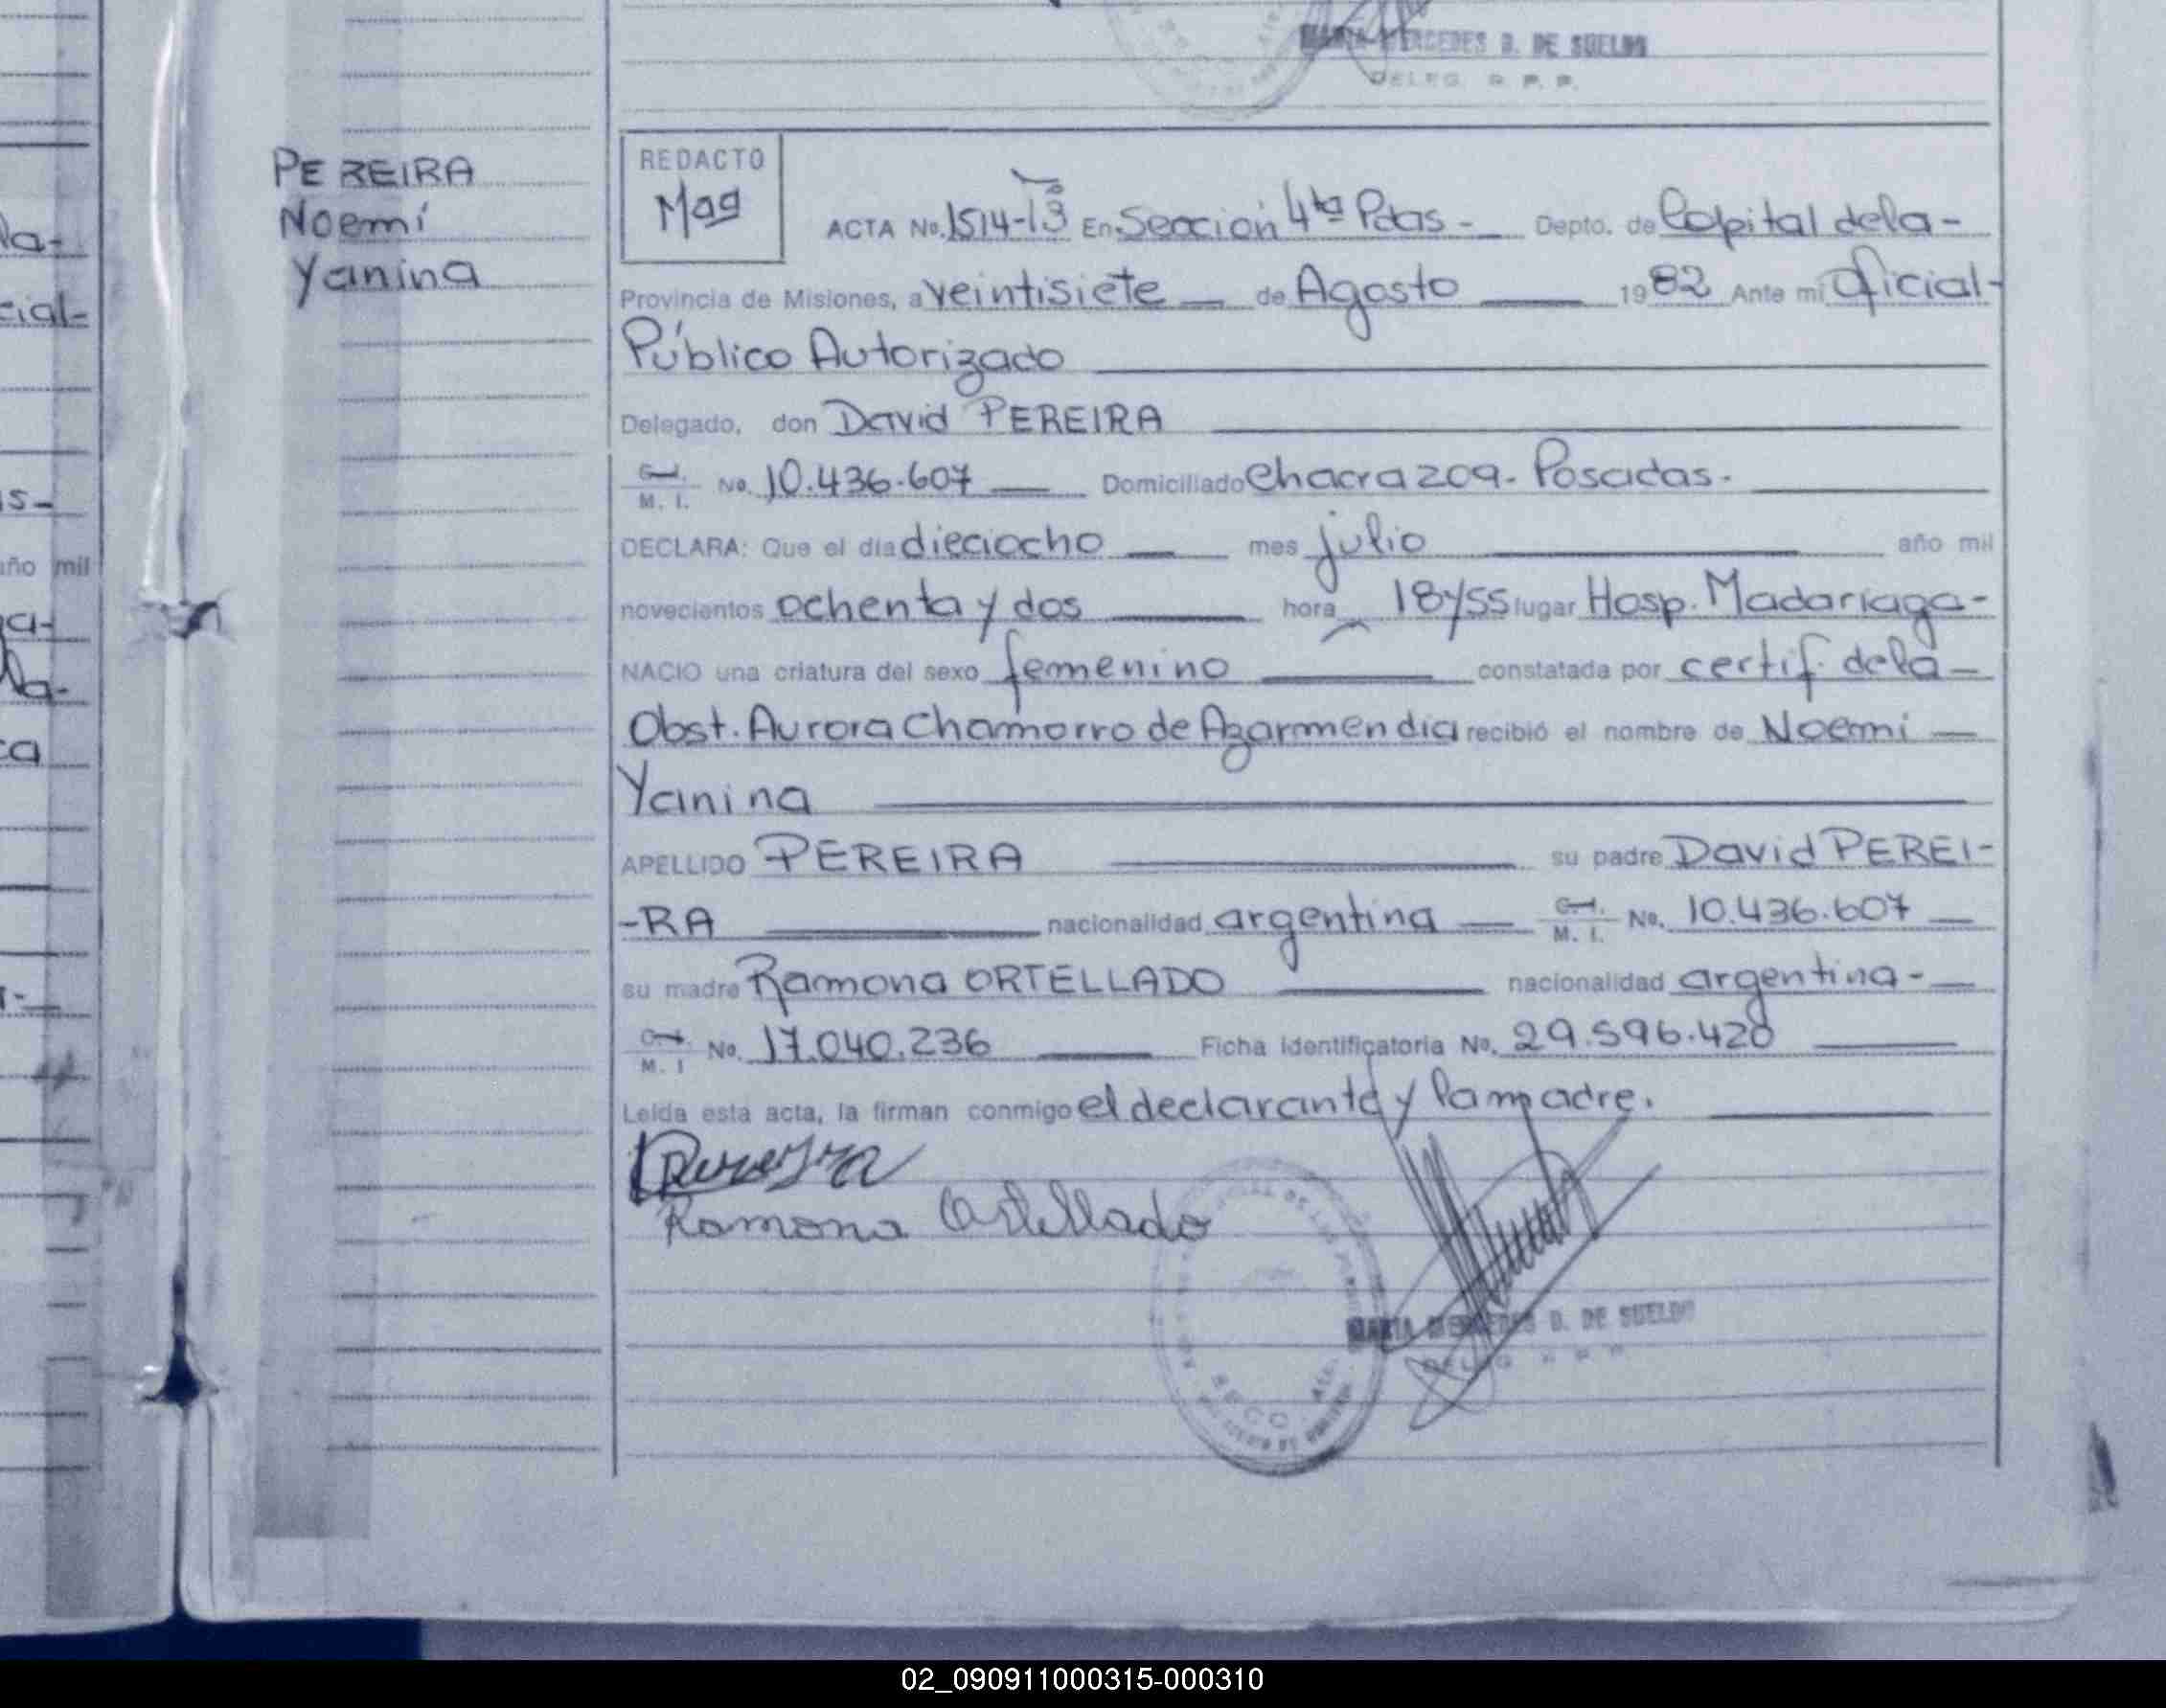 MARIA MERCEDES D. DE SUELDO
DELEG R. P. P.
PEREIRA
Noemí
Yanina
REDACTO
Mag
ACTA No. 1514-Tº 13 En Sección 4ta Pdas - Depto. de Capital de la -
Provincia de Misiones, a veintisiete de Agosto 1982 Ante mi Oficial -
Público Autorizado
Delegado, don David PEREIRA
C. I.
M. I. No. 10.436.607 Domiciliado Chacra 209. Posadas.
DECLARA: Que el día dieciocho mes julio año mil
novecientos ochenta y dos hora 18y55 lugar Hosp. Madariaga -
NACIO una criatura del sexo femenino constatada por certif. de la -
Obst. Aurora Chamorro de Azarmendia recibió el nombre de Noemi
Yanina
APELLIDO PEREIRA su padre David PEREI-
-RA nacionalidad argentina C. I. M. I. No. 10.436.607
su madre Ramona ORTELLADO nacionalidad argentina -
C. I. M. I No. 17.040.236 Ficha Identificatoria No. 29.596.420
Leída esta acta, la firman conmigo el declarante y la madre.
Pereira
Ramona Ortellado
MARIA MERCEDES D. DE SUELDO
DELEG R P P
02_090911000315-000310